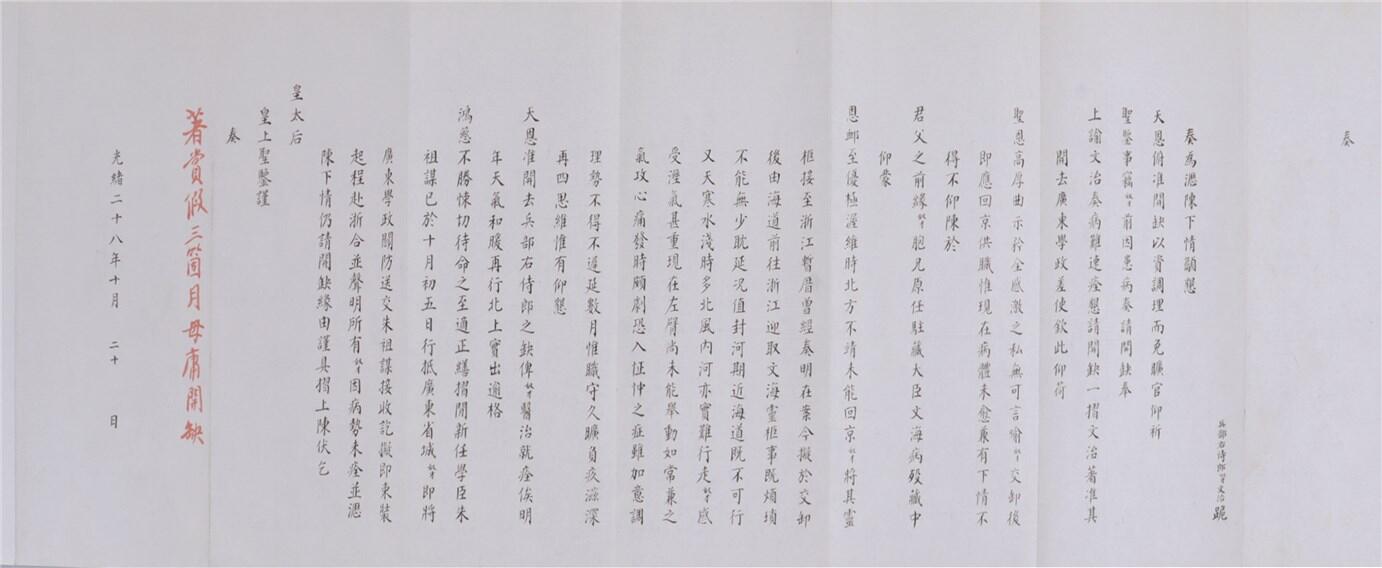 奏
兵部右侍郎奴才文治跪
奏為瀝陳下情籲懇
天恩俯准開缺以資調理而免曠官仰祈
聖鑒事竊奴才前因患病奏請開缺奉
上諭文治奏病難速痊懇請開缺一摺文治著准其
開去廣東學政差使欽此仰荷
聖恩高厚曲示矜全感激之私無可言喻奴才交卸後
即應回京供職惟現在病體未愈兼有下情不
得不仰陳於
君父之前緣奴才胞兄原任駐藏大臣文海病歿藏中
仰蒙
恩卹至優極渥維時北方不靖未能回京奴才將其靈
柩接至浙江暫厝曾經奏明在案今擬於交卸
後由海道前往浙江迎取文海靈柩事既煩瑣
不能無少耽延況值封河期近海道既不可行
又天寒水淺時多北風內河亦實難行走奴才感
受溼氣甚重現在左臂尚未能舉動如常兼之
氣攻心痛發時頗劇恐入怔忡之症雖加意調
理勢不得不遲延數月惟職守久曠負疚滋深
再四思維惟有仰懇
天恩准開去兵部右侍郎之缺俾奴才醫治就痊俟明
年天氣和暖再行北上實出逾格
鴻慈不勝悚切待命之至適正繕摺間新任學臣朱
祖謀已於十月初五日行抵廣東省城奴才即將
廣東學政關防送交朱祖謀接收訖擬即束裝
起程赴浙合並聲明所有奴才因病勢未痊並瀝
陳下情仍請開缺緣由謹具摺上陳伏乞
皇太后
皇上聖鑒謹
奏
著賞假三箇月毋庸開缺
光緒二十八年十月 二十 日